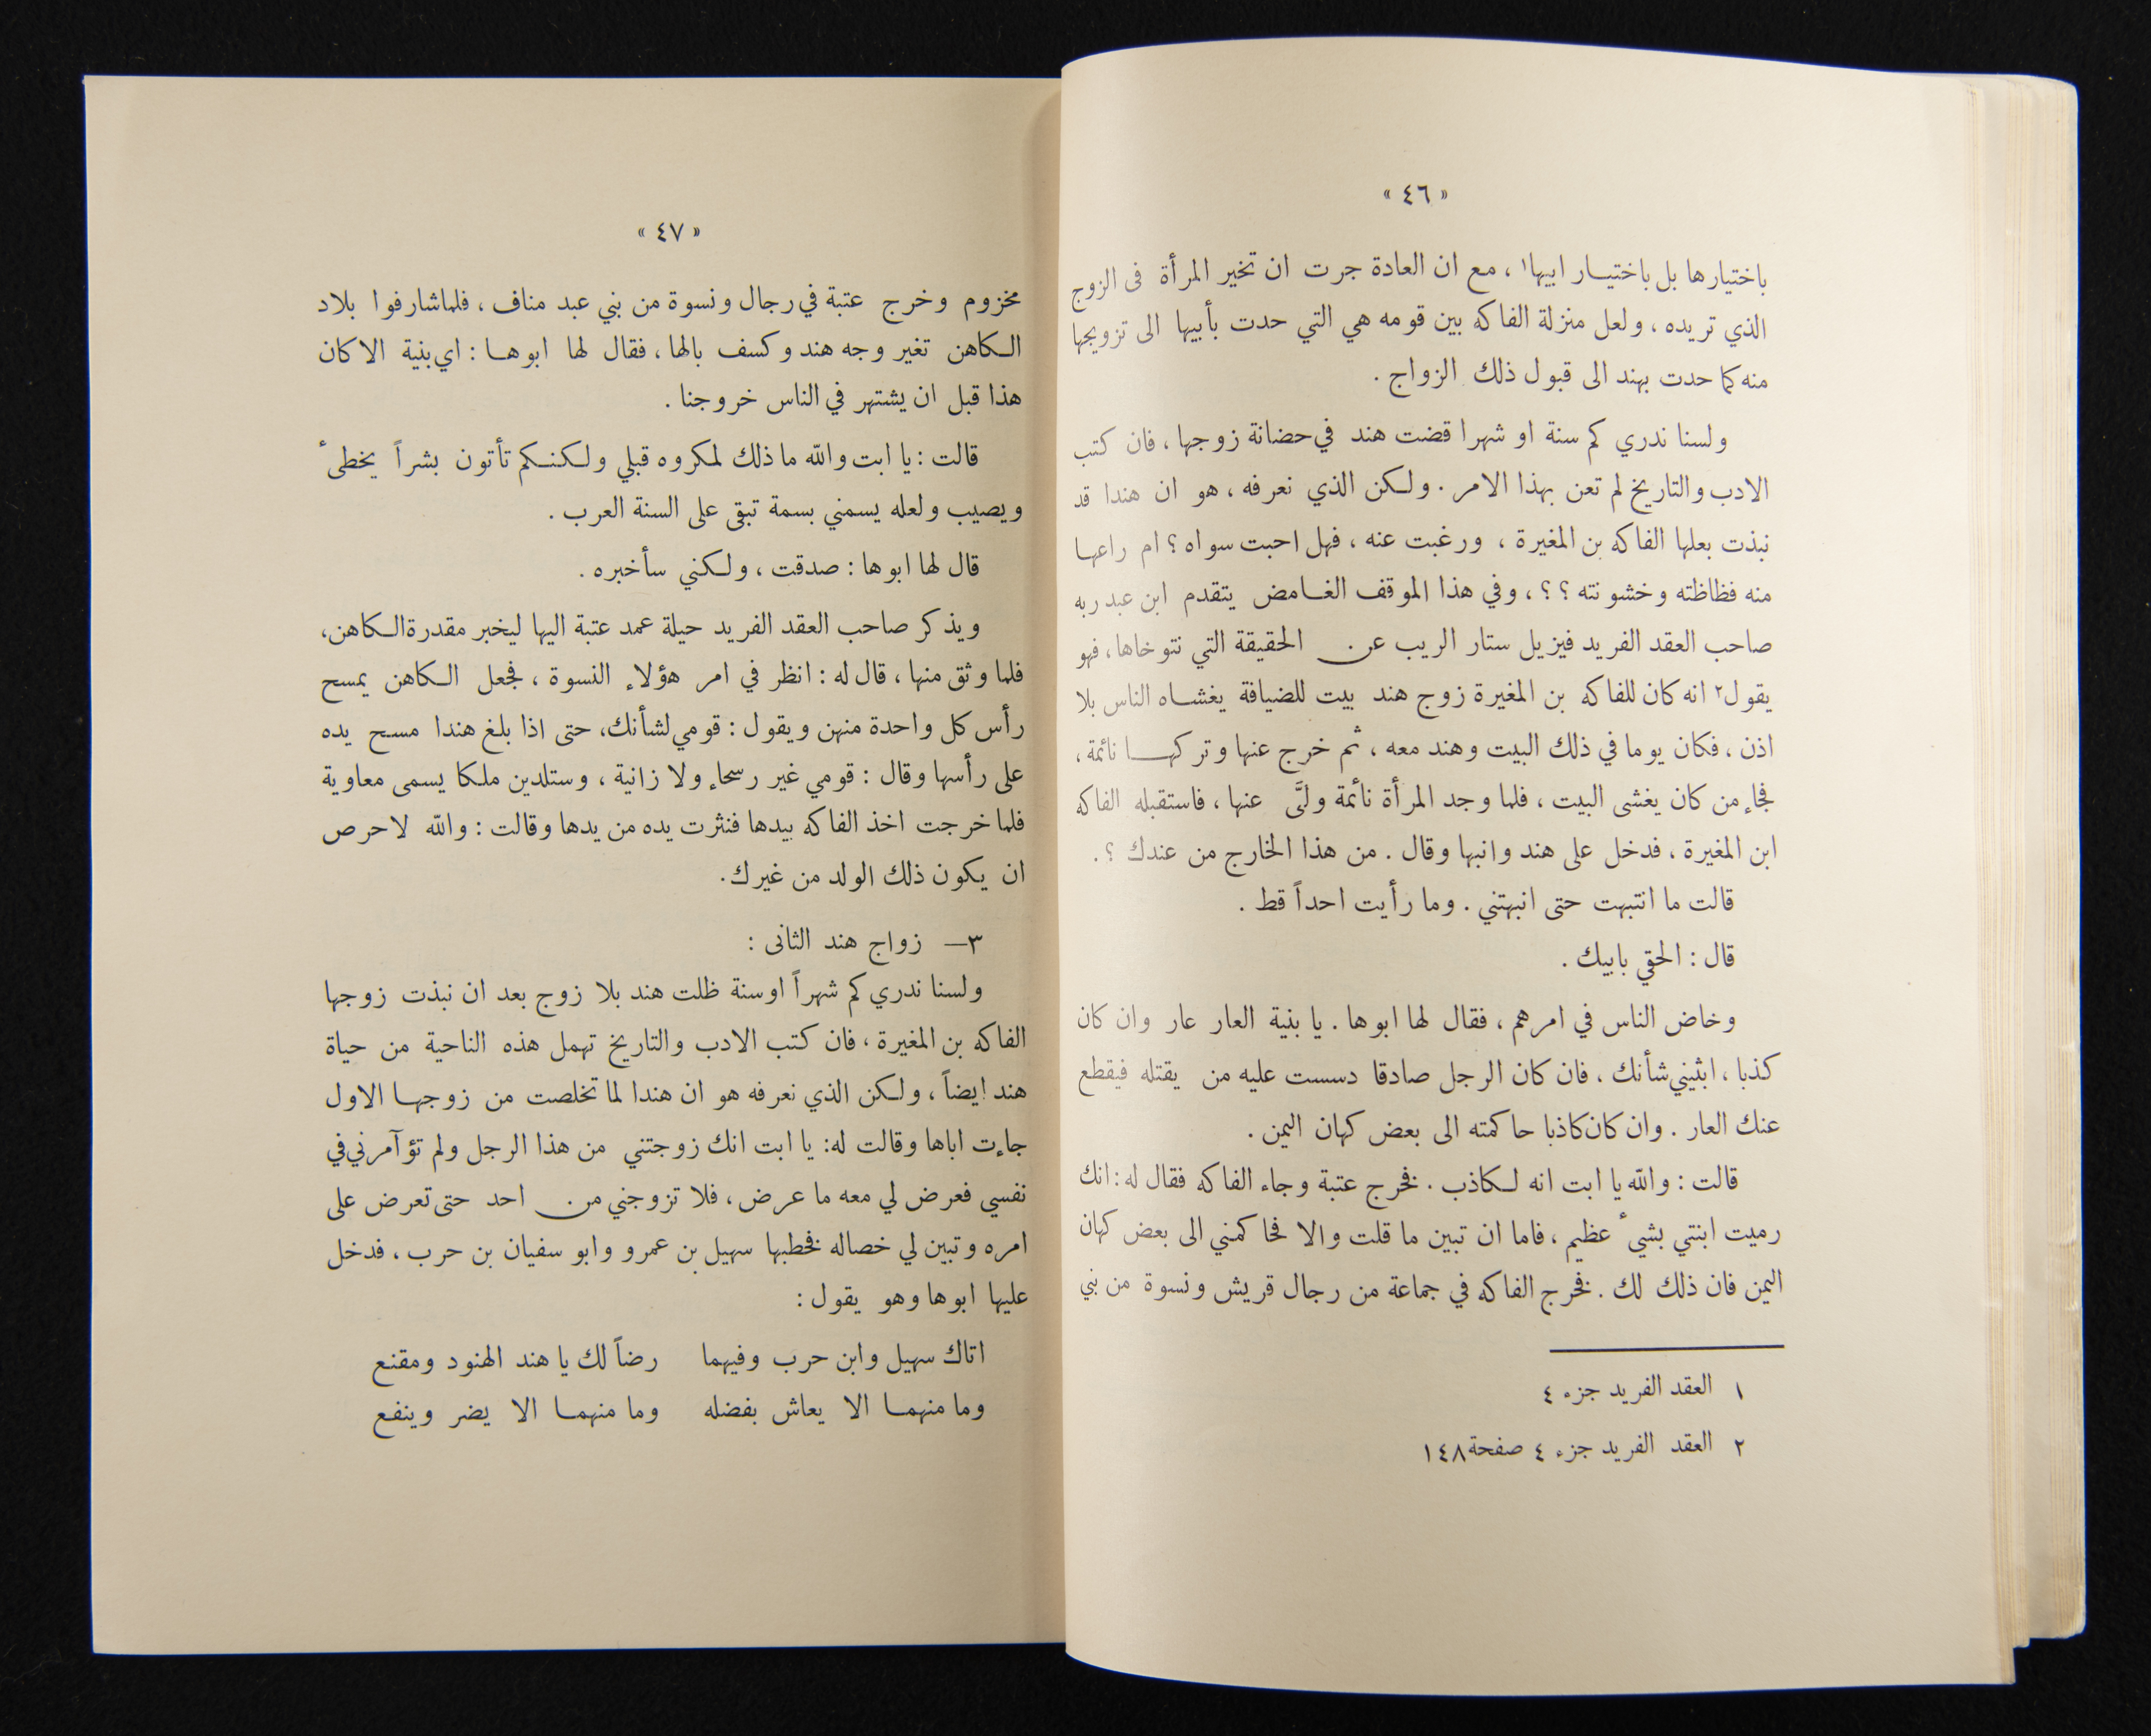 « ٤٦ »
باختيارها بل باختيار ابيها١ ، مع ان العادة جرت ان تخير المرأة فى الزوج
الذي تريده ، ولعل منزلة الفاكه بين قومه هي التي حدت بأبيها الى تزويجها
منه كما حدت بهند الى قبول ذلك الزواج .
ولسنا ندري كم سنة او شهرا قضت هند في حضانة زوجها ، فان كتب
الادب والتاريخ لم تعن بهذا الامر . ولكن الذي نعرفه ، هو ان هندا قد
نبذت بعلها الفاكه بن المغيرة ، ورغبت عنه ، فهل احبت سواه ؟ ام راعها
منه فظاظته وخشونته ؟ ؟ ، وفي هذا الموقف الغامض يتقدم ابن عبد ربه
صاحب العقد الفريد فيزيل ستار الريب عن الحقيقة التي نتوخاها ، فهو
يقول٢ انه كان للفاكه بن المغيرة زوج هند بيت للضيافة يغشاه الناس بلا
اذن ، فكان يوما في ذلك البيت وهند معه ، ثم خرج عنها وتركها نائمة ،
فجاء من كان يغشى البيت ، فلما وجد المرأة نائمة ولَّى عنها ، فاستقبله الفاكه
ابن المغيرة ، فدخل على هند وانبها وقال . من هذا الخارج من عندك ؟ .
قالت ما انتبهت حتى انبهتني . وما رأيت احداً قط .
قال : الحقي بابيك .
وخاض الناس في امرهم ، فقال لها ابوها . يا بنية العار عار وان كان
كذبا ، ابثيني شأنك ، فان كان الرجل صادقا دسست عليه من يقتله فيقطع
عنك العار . وان كان كاذبا حاكمته الى بعض كهان اليمن .
قالت : والله يا ابت انه لكاذب . فخرج عتبة وجاء الفاكه فقال له : انك
رميت ابنتي بشئ عظيم ، فاما ان تبين ما قلت والا فحاكمني الى بعض كهان
اليمن فان ذلك لك . فخرج الفاكه في جماعة من رجال قريش ونسوة من بني
١ العقد الفريد جزء ٤
٢ العقد الفريد جزء ٤ صفحة ١٤٨
« ٤٧ »
مخزوم وخرج عتبة في رجال ونسوة من بني عبد مناف ، فلما شارفوا بلاد
الكاهن تغير وجه هند وكسف بالها ، فقال لها ابوها : اي بنية الا كان
هذا قبل ان يشتهر في الناس خروجنا .
قالت : يا ابت والله ما ذلك لمكروه قبلي ولكنكم تأتون بشراً يخطىٔ
ويصيب ولعله يسمني بسمة تبقى على السنة العرب .
قال لها ابوها : صدقت ، ولكني سأخبره .
ويذكر صاحب العقد الفريد حيلة عمد عتبة اليها ليخبر مقدرة الكاهن ،
فلما وثق منها ، قال له : انظر في امر هؤلاء النسوة ، فجعل الكاهن يمسح
رأس كل واحدة منهن ويقول : قومي لشأنك ، حتى اذا بلغ هندا مسح يده
على رأسها وقال : قومي غير رسحاء ولا زانية ، وستلدين ملكا يسمى معاوية
فلما خرجت اخذ الفاكه بيدها فنثرت يده من يدها وقالت : والله لاحرص
ان يكون ذلك الولد من غيرك .
٣— زواج هند الثانى :
ولسنا ندري كم شهراً او سنة ظلت هند بلا زوج بعد ان نبذت زوجها
الفاكه بن المغيرة ، فان كتب الادب والتاريخ تهمل هذه الناحية من حياة
هند ايضاً ، ولكن الذي نعرفه هو ان هندا لما تخلصت من زوجها الاول
جاءت اباها وقالت له : يا ابت انك زوجتني من هذا الرجل ولم تؤآمرني في
نفسي فعرض لي معه ما عرض ، فلا تزوجني من احد حتى تعرض على
امره وتبين لي خصاله فخطبها سهيل بن عمرو وابو سفيان بن حرب ، فدخل
عليها ابوها وهو يقول :
اتاك سهيل وابن حرب وفيهما رضاً لك يا هند الهنود ومقنع
وما منهما الا يعاش بفضله وما منهما الا يضر وينفع